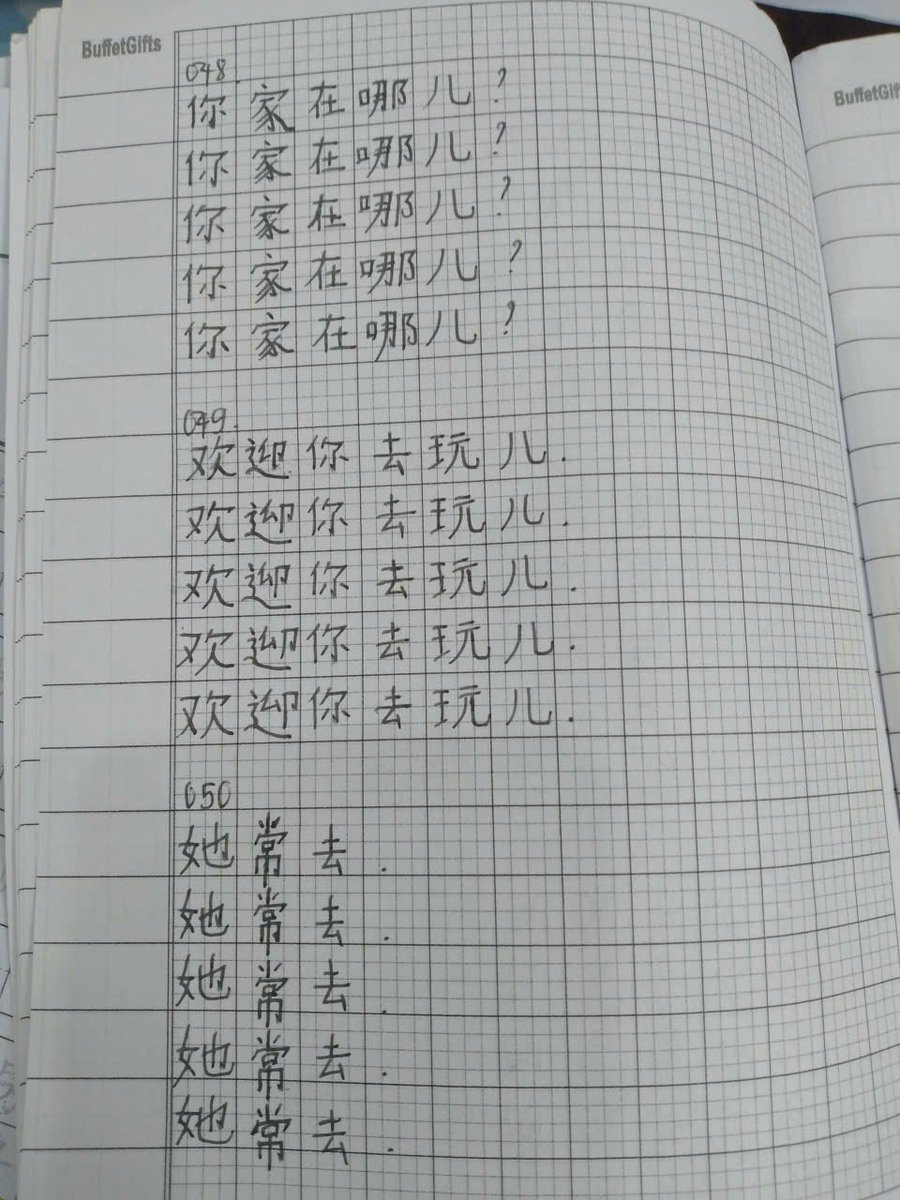 BuffetGifts
048.
你家在哪儿?
你家在哪儿?
你家在哪儿?
你家在哪儿?
你家在哪儿?
049.
欢迎你去玩儿.
欢迎你去玩儿.
欢迎你去玩儿.
欢迎你去玩儿.
欢迎你去玩儿.
050
她常去.
她常去.
她常去.
她常去.
她常去.